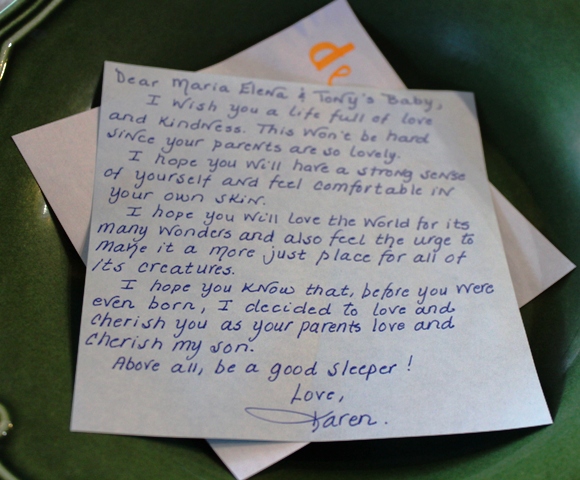 de
Dear Maria Elena & Tony's Baby,
I wish you a life full of love
and kindness. This won't be hard
since your parents are so lovely.
I hope you will have a strong sense
of yourself and feel comfortable in
your own skin.
I hope you will love the world for its
many wonders and also feel the urge to
make it a more just place for all of
its creatures.
I hope you know that, before you were
even born, I decided to love and
cherish you as your parents love and
cherish my son.
Above all, be a good sleeper!
Love,
Karen.